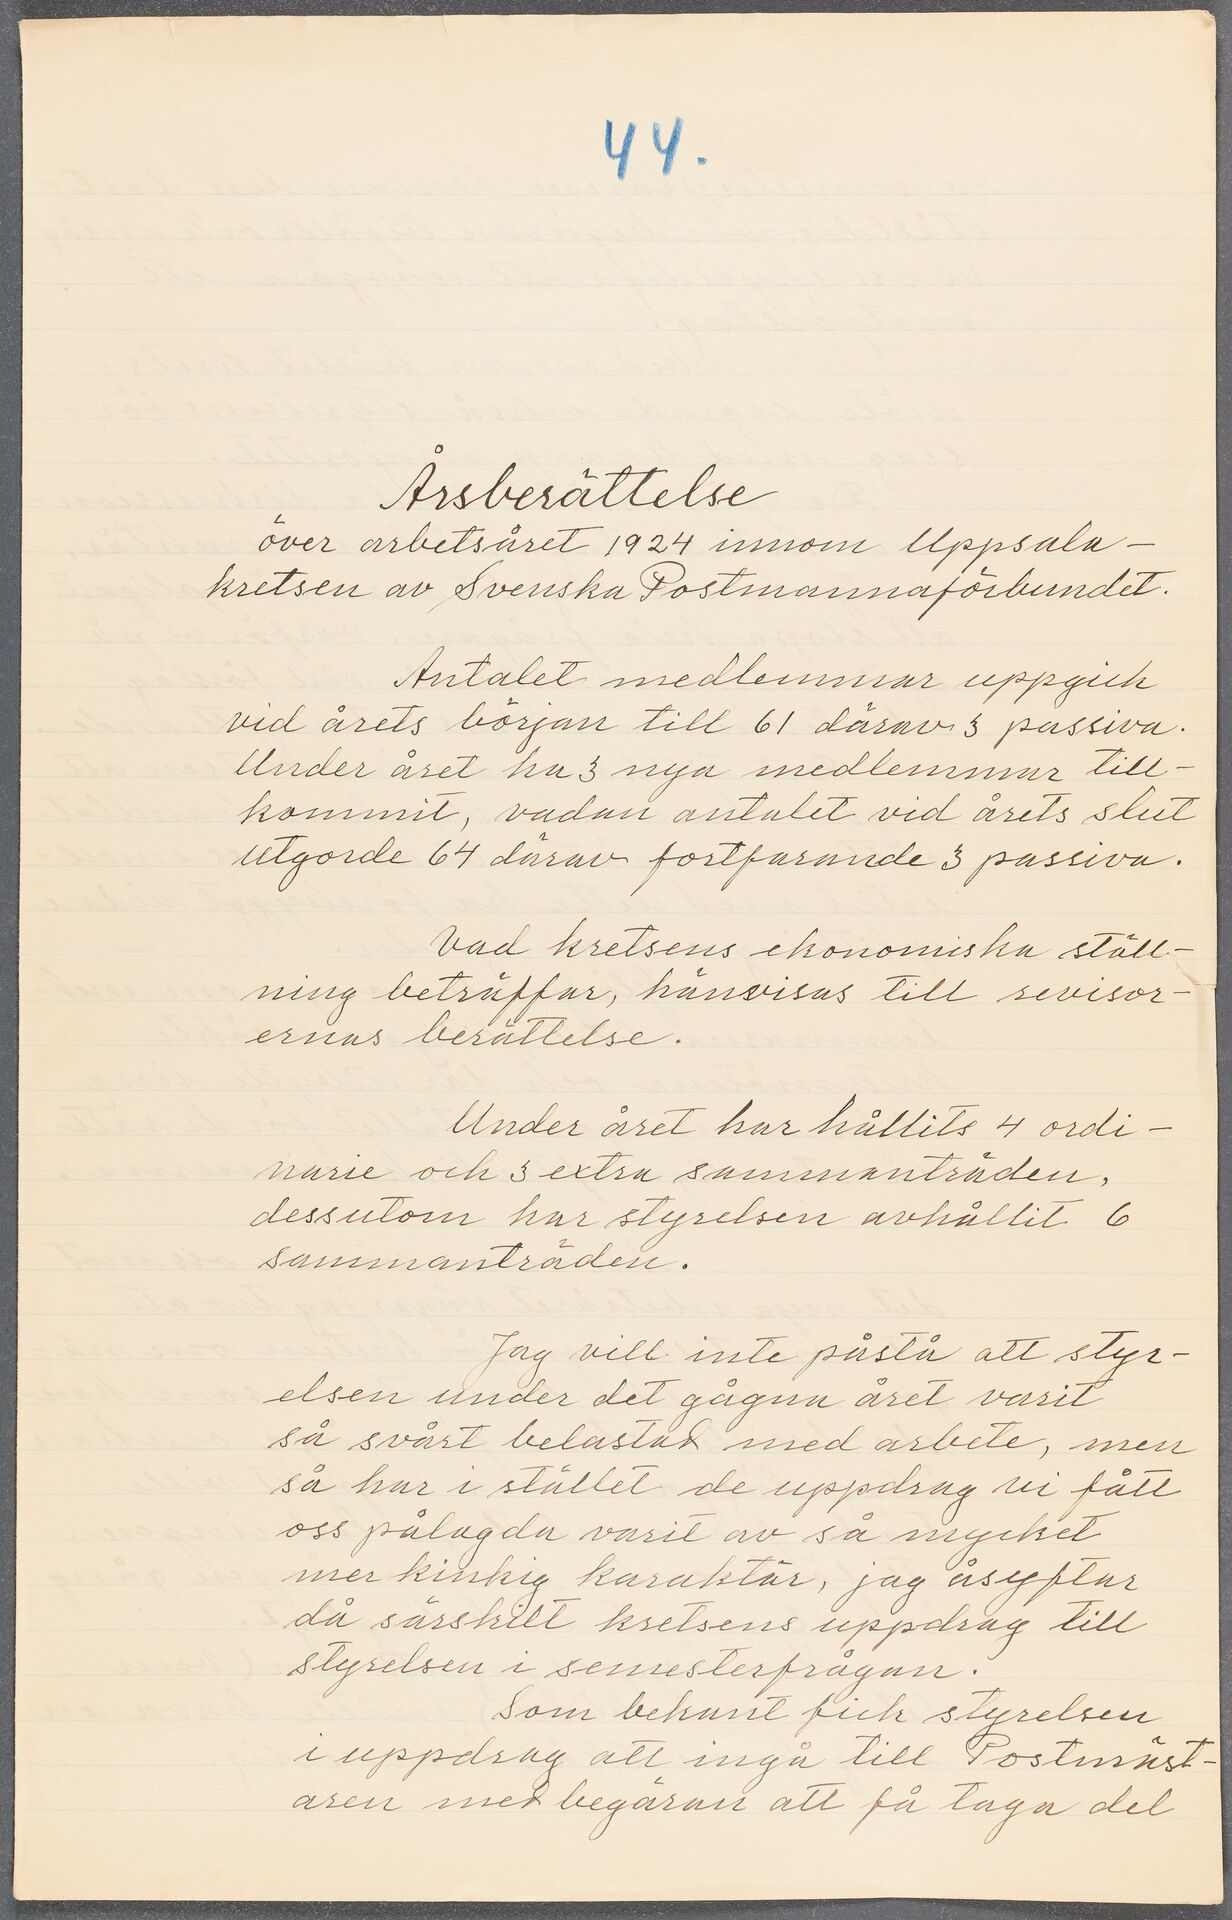 44.
Årsberättelse
över arbetsåret 1924 innom Uppsala-
kretsen av Svenska Postmannaförbundet.
Antalet medlemmar uppgick
vid årets början till 61 därav 3 passiva.
Under året ha 3 nya medlemmar till-
kommit, vadan antalet vid årets slut
utgorde 64 därav fortfarande 3 passiva.
Vad kretsens ekonomiska ställ-
ning beträffar, hänvisas till revisor-
ernas berättelse.
Under året har hållits 4 ordi-
narie och 3 extra sammanträden,
dessutom har styrelsen avhållit 6
sammanträden.
Jag vill inte påstå att styr-
elsen under det gågna året varit
så svårt belastad med arbete, men
så har i stället de uppdrag vi fått
oss pålagda varit av så mycket
mer kinkig karaktär, jag åsyftar
då särskilt kretsens uppdrag till
styrelsen i semesterfrågan.
Som bekant fick styrelsen
i uppdrag att ingå till Postmäst-
aren med begäran att få taga del